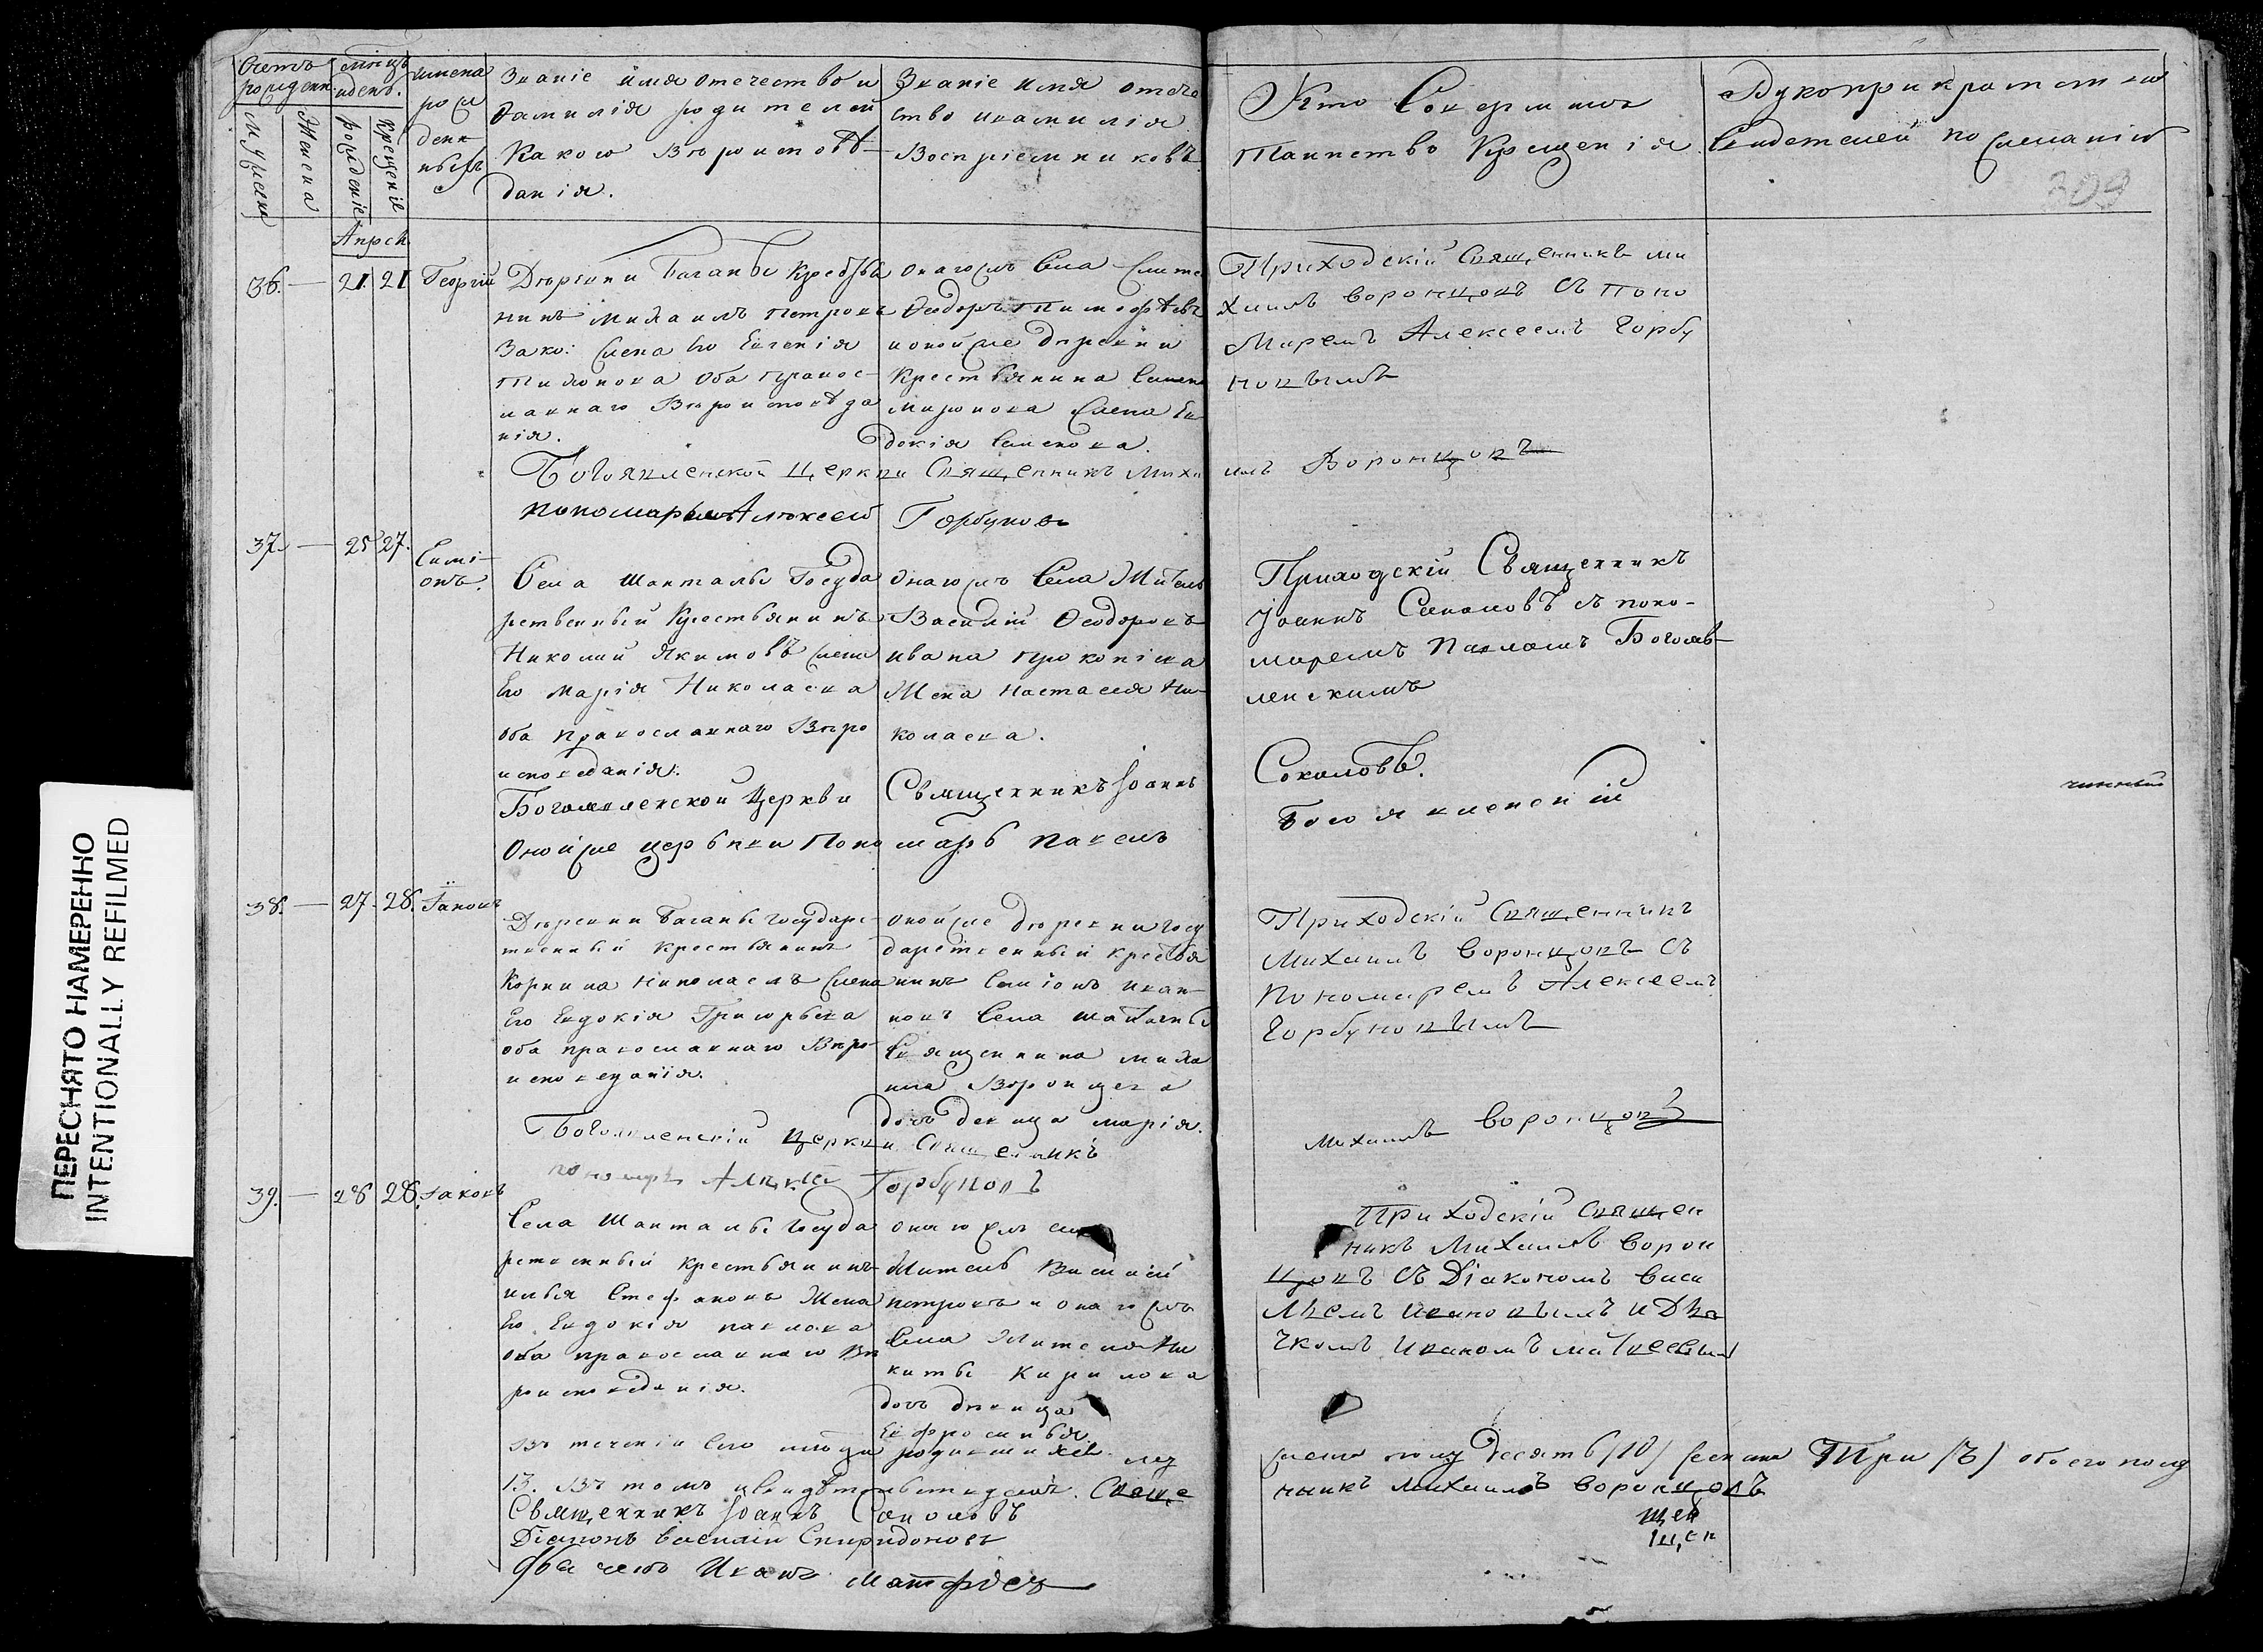 Счетъ рожденн.
Мужеска
Женска
Месяцъ и день.
Рожденіе
Крещеніе
Имена рожденныхъ
Званіе имя отечество и
Фамилія родителей
Какого Вѣроисповѣ-
данія.
Званіе имя отече
ство и фамилія
Воспріемниковъ
Кто Совершалъ
Таинство Крещенія
Рукоприкратство
Свидетелей по желанію
309
Апрель
36. — 21. 21 Георгій
Деревни Баганы Крестья
нинъ Михаилъ Петровъ
Зако: жена Его Евгенія
Тихонова Оба Правос-
лавнаго Вѣроисповѣда
нія.
Онагожъ Села жите
Феодоръ Тимофѣевъ
и онойже деревни
Крестьянина Семена
Миронова жена Ев
докія Семенова.
Приходскій Священникъ Ми
хаилъ Воронцовъ съ поно
Маремъ Алексеемъ Горбу
новымъ
Богоявленской Церкви Священникъ Миха
илъ Воронцовъ
Пономарь Алексей Горбуновъ
37. — 25 27. Симі-
онъ.
Села Шанталы Государ
рственный Крестьянинъ
Николай Якимовъ жена
Его Марія Николаева
оба православнаго Вѣро
исповеданія.
Онагожъ Села Житель
Василій Феодоровъ
Ивана Прокопіева
Жена Настасья Ни-
колаева.
Приходскій Священникъ
Іоаннъ Соколовъ съ поно-
маремъ Павломъ Богояв-
ленскимъ
Богоявленской Церкви Священникъ Іоаннъ
Соколовъ.
Онойже церькви Поно марь Павелъ
Богоявленскій
чинный
38. — 27. 28. Іаковъ
Деревни Баганы Государс-
твенный Крестьянинъ
Корнила Николаевъ жена
Его Евдокія Григорьева
оба православнаго Вѣро
исповеданія.
Онойже деревни Госу
дарственный крестья
нинъ Симіонъ Иван-
новъ Села Шанталы
Священника Миха
ила Воронцова
дочь девица Марія.
Приходскій Священникъ
Михаилъ Воронцовъ Съ
Пономаремъ Алексеемъ
Горбуновымъ
Богоявленскій Церкви Священикъ
Михаилъ Воронцовъ
пономарь Алексей Горбуновъ
39. — 28 28. Іаковъ
Села Шанталы Государ
рственный крестьянинъ
Илья Стефановъ Жена
Его Евдокія Павлова
оба православнаго Вѣ
роисповеданія.
Онагожъ села
Житель Василій
Петровъ и онагожъ
Села Жителя Ни
киты Кирилова
дочь девица
Ефросинья.
Приходскій Священ
никъ Михаилъ Ворон
цовъ Съ Діакономъ Васи
льемъ Ивановымъ и Дья
чкомъ Иваномъ Матвеевым
Въ теченіи Сего месяца родившихся муж
жеска полу Десять (10) женска Три (3) обоего полу
13. Въ томъ и свидетельствуемъ. Свяще
нникъ Михаилъ Воронцовъ
Священникъ Іоаннъ Соколовъ
щен
щен
Діаконъ Василій Спиридоновъ
Дьячекъ Иванъ Матфеевъ
ПЕРЕСНЯТО НАМЕРЕННО
INTENTIONALLY REFILMED